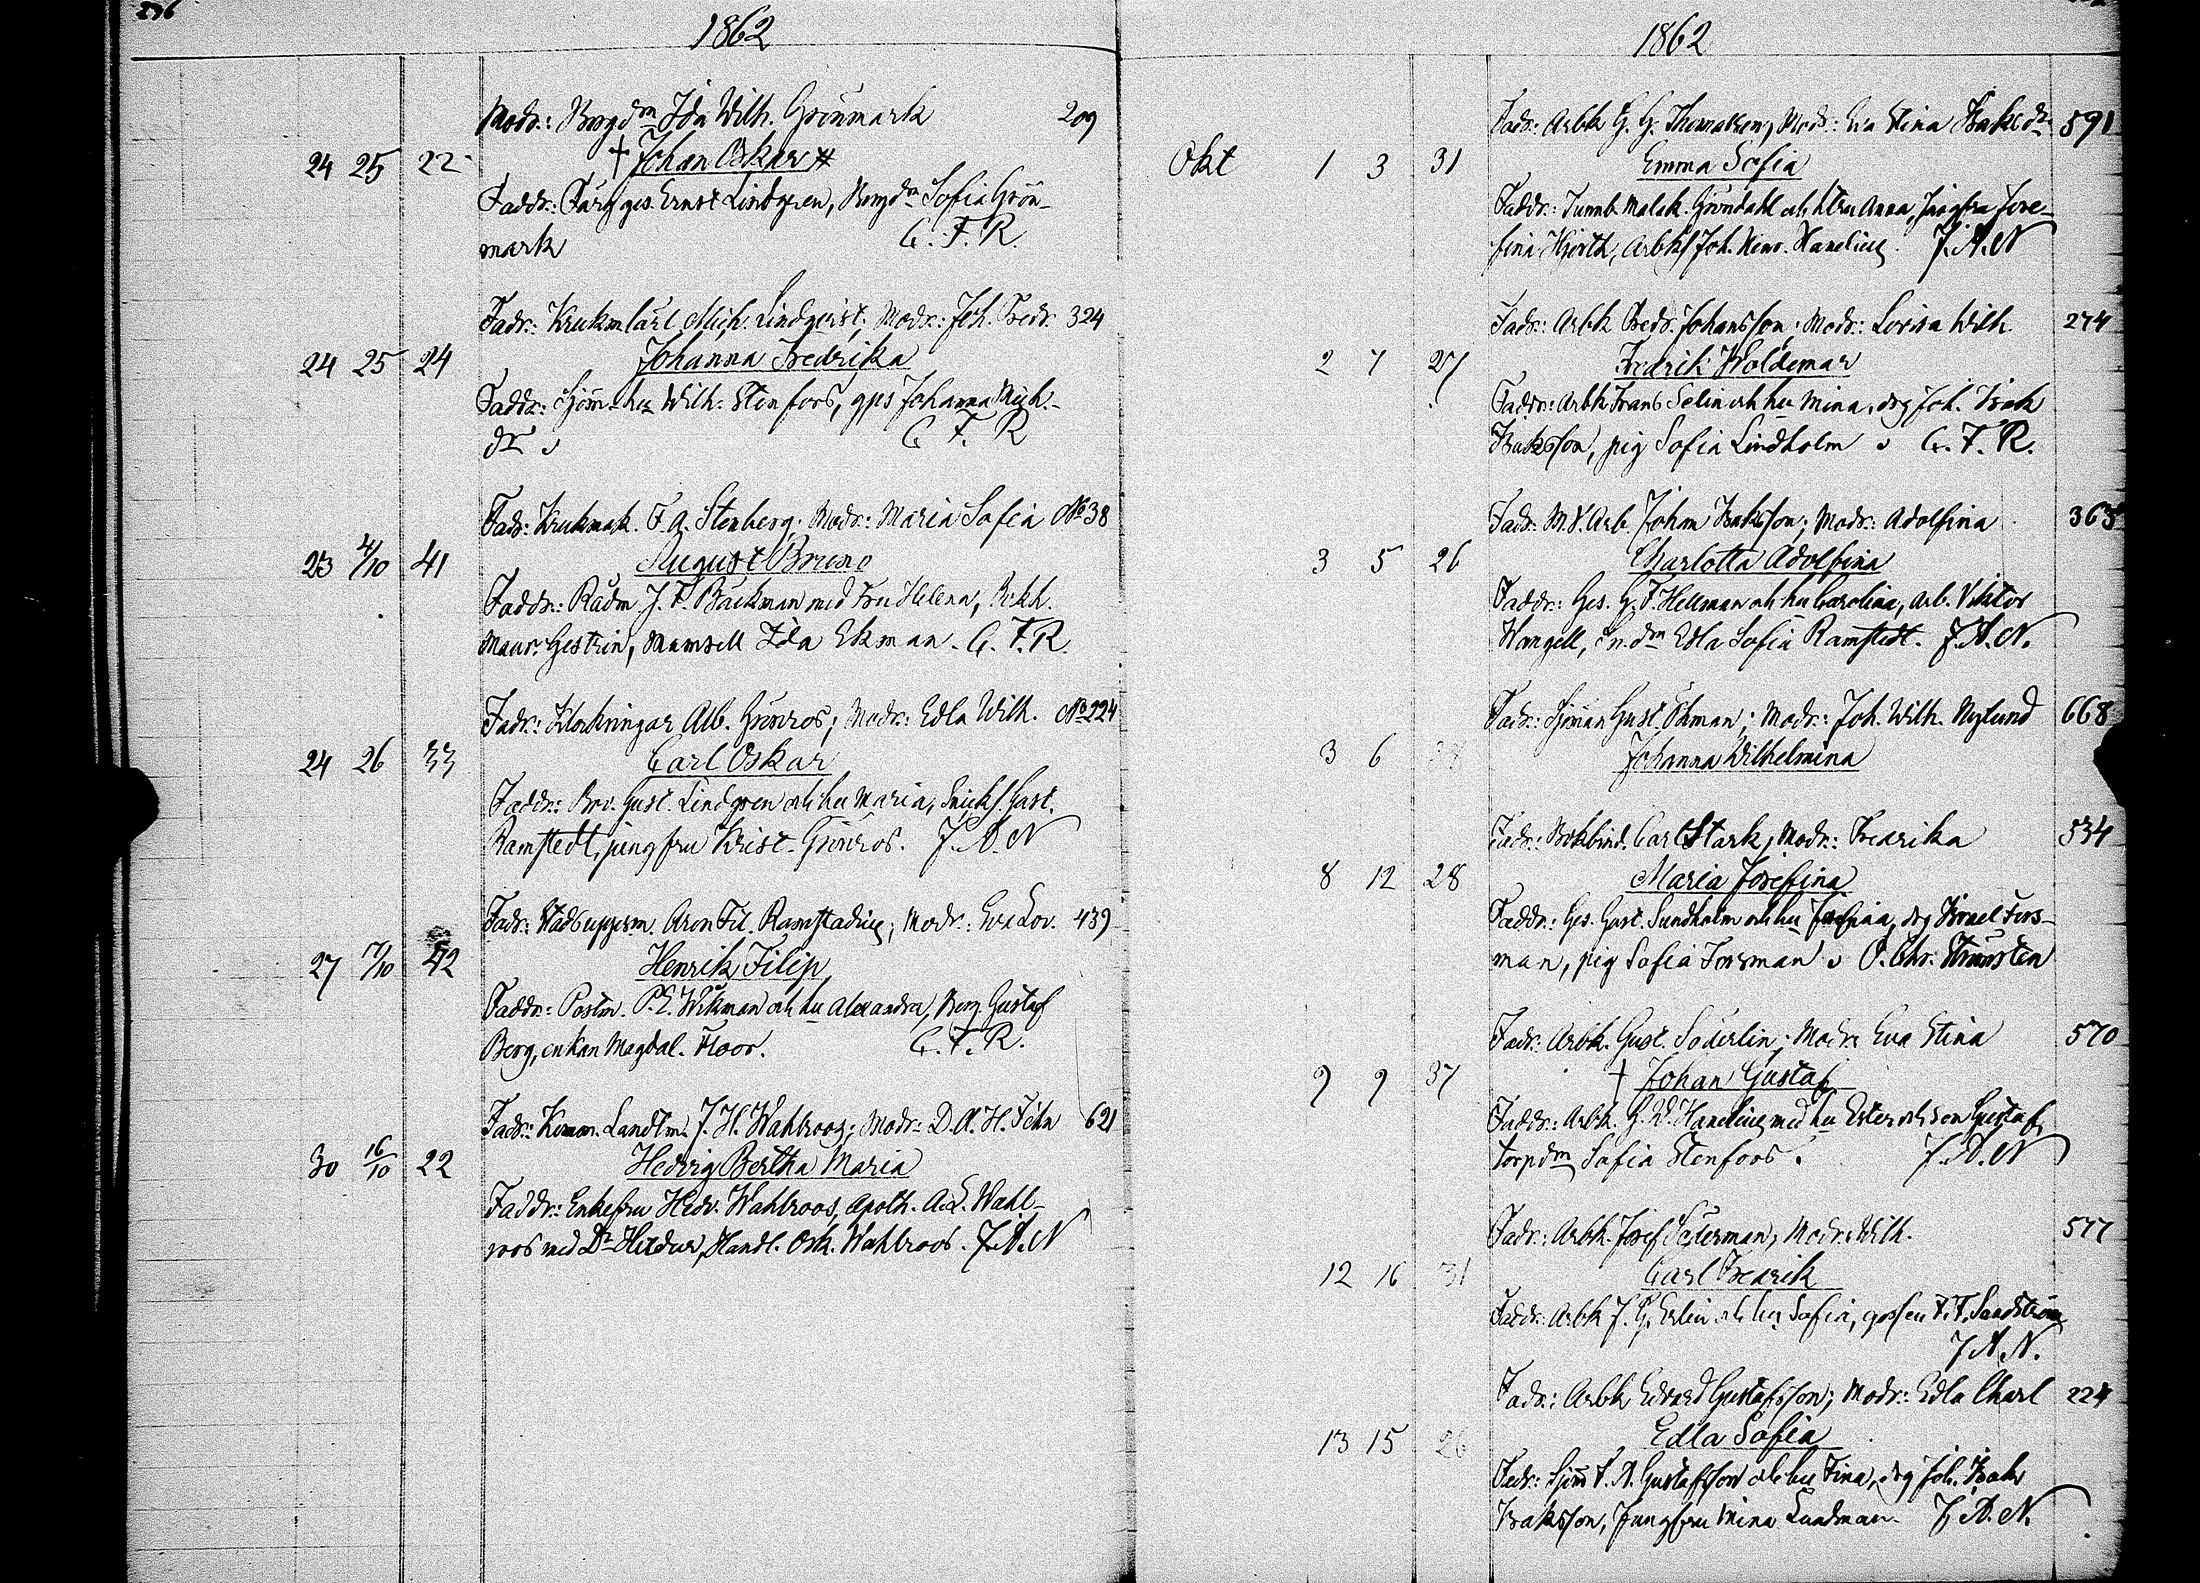 236
1862
Modr.: Borgdn Ida Wilh. Grönmark 209
24 25 22 † Johan Oskar #
Faddr.: Färg ges. Ernst Lindgren, Borgdn Sofia Grön-
mark C. F. R.
Fadr.: Krukm lärl Mich. Lindqvist; Modr.: Joh. Fredr. 324
24 25 24 Johanna Fredrika
Faddr.: Sjöm hu Wilh. Stenfors, gps Johanna Mich.
dr C. F. R
Fadr: Krukmak. F. A. Stenberg; Modr.: Maria Sofia No 38
23 4/10 41 August Bruno
Faddr.: Rådm J. F. Bäckman med Fru Helena, Bokh.
Maur. Gestrin, Mamsell Ida Ekman. C. F. R.
Fadr.: Klockringar Alb. Grönros; Modr.: Edla Wilh. No 224
24 26 33 Carl Oskar
Faddr.: Bov. Gust. Lindgren och hu Maria, Snick. Gust.
Ramstedt, jungfru Krist. Grönros. J. A. N
Fadr.: Stadsuppsm. Aron Fil. Ramstadius; Modr.: Eva Lov. 439
27 7/10 42 Henrik Filip
Faddr.: Postm. P. E. Wikman och hu Alexandra, Borg. Gustaf
Berg, enkan Magdal. Floor. C. F. R.
Fadr.: Komm. Landtm. J. H. Wahlroos; Modr: D. A. H. Tehn 621
30 16/10 22 Hedvig Bertha Maria
Faddr.: Enkefru Hedv. Wahlroos, Apoth. A. L. Wahl-
roos med Dr Hildur, Handl. Osk. Wahlroos. J. A. N
1862
Fadr.: Arbk G. G. Thomasson, Modr.: Eva Stina Isaksdr 591
Okt 1 3 31 Emma Sofia
Faddr.: Tunnb. Malak. Gröndahl och Hu Anna, Jungfru Jose-
fina Hjorth, Arbk Joh. Henr. Hanelius. J. A. N
Fadr.: Arbk Fredr. Johansson; Modr.: Lovisa Wilh 274
2 7 27 Fredrik Woldemar
Faddr: Arbk Frans Selin och hu Mina, drg Joh. Isak
Isaksson, pig Sofia Lindholm C. F. R.
Fadr: Arb. Johan Isaksson; Modr: Adolfina 363
3 5 26 Charlotta Adolfina
Faddr: Ges. G. F. Hellman och hu Carolina, Arb. Viktor
Wangell, Sn.dn Edla Sofia Ramstedt. J. A. N.
Fadr: Sjöman Gust. Öhman; Modr: Joh. Wilh. Nylund 668
3 6 38 Johanna Wilhelmina
Fadr.: Bokbind. Carl Stark; Modr.: Fredrika 534
8 12 28 Maria Josefina
Faddr.: Ges. Gust. Sundholm och hu Josefina, drg Israel Fors-
man, pig Sofia Forsman O. Chr. Strömsten
Fadr: Arbk. Gust. Söderlin; Modr: Eva Stina 570
9 9 37 † Johan Gustaf
Faddr.: Arbk. G. W. Hanelius med hu Ester och son Gustaf,
torpdn Sofia Stenfors. J. A. N
Fadr.: Arbk. Josef Söderman; Modr: Wilh. 577
12 16 31 Carl Fredrik
Faddr: Arbk J. G. Erlin och hu Sofia, gossen F. F. Sandström
J. A. N.
Fadr.: Arbk Edvard Gustafsson; Modr: Edla Charl 224
13 15 26 Edla Sofia
Fadr: Sjöm F. A. Gustafsson och hu Fina, drg Joh. Isak
Isaksson, Jungfru Mina Lundman. J. A. N.